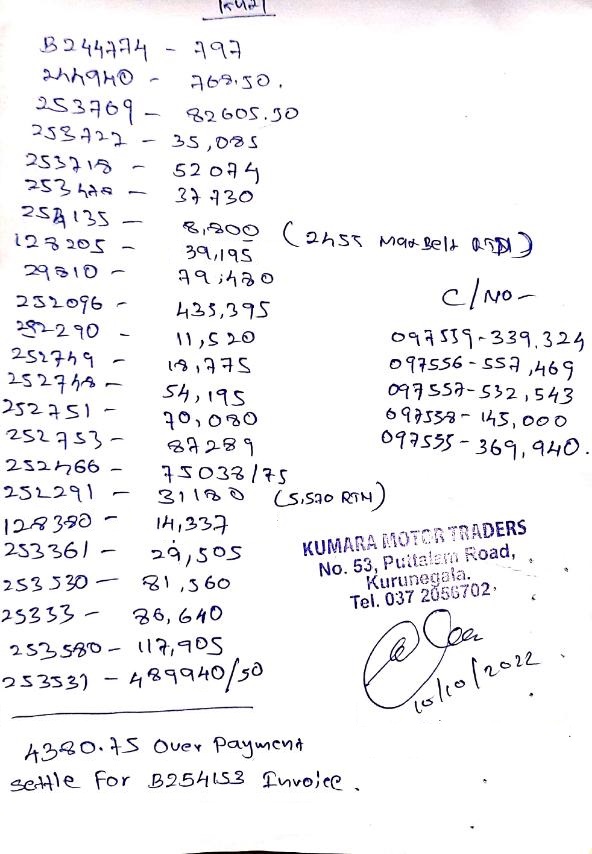 B244774 - 797
244940 - 768.50.
253769 - 82605.50
253727 - 35,085
253718 - 52074
253478 - 37730
254135 - 8,800 (2455 Max Belt RTN)
128205 - 39,195
29810 - 79,480
252096 - 435,395
252290 - 11,520
252749 - 18,775
252748 - 54,195
252751 - 70,080
252753 - 87289
252466 - 75038/75
252291 - 31180 (5,570 RTN)
128380 - 14,337
253361 - 29,505
253530 - 81,560
25333 - 86,640
253580 - 117,905
253531 - 489940/50
C/NO -
097559 - 339,324
097556 - 557,469
097557 - 532,543
097558 - 145,000
097555 - 369,940.
KUMARA MOTOR TRADERS
No. 53, Puttalam Road,
Kurunegala.
Tel. 037 2056702.
10/10/2022
4380.75 Over Payment
settle for B254153 Invoice.